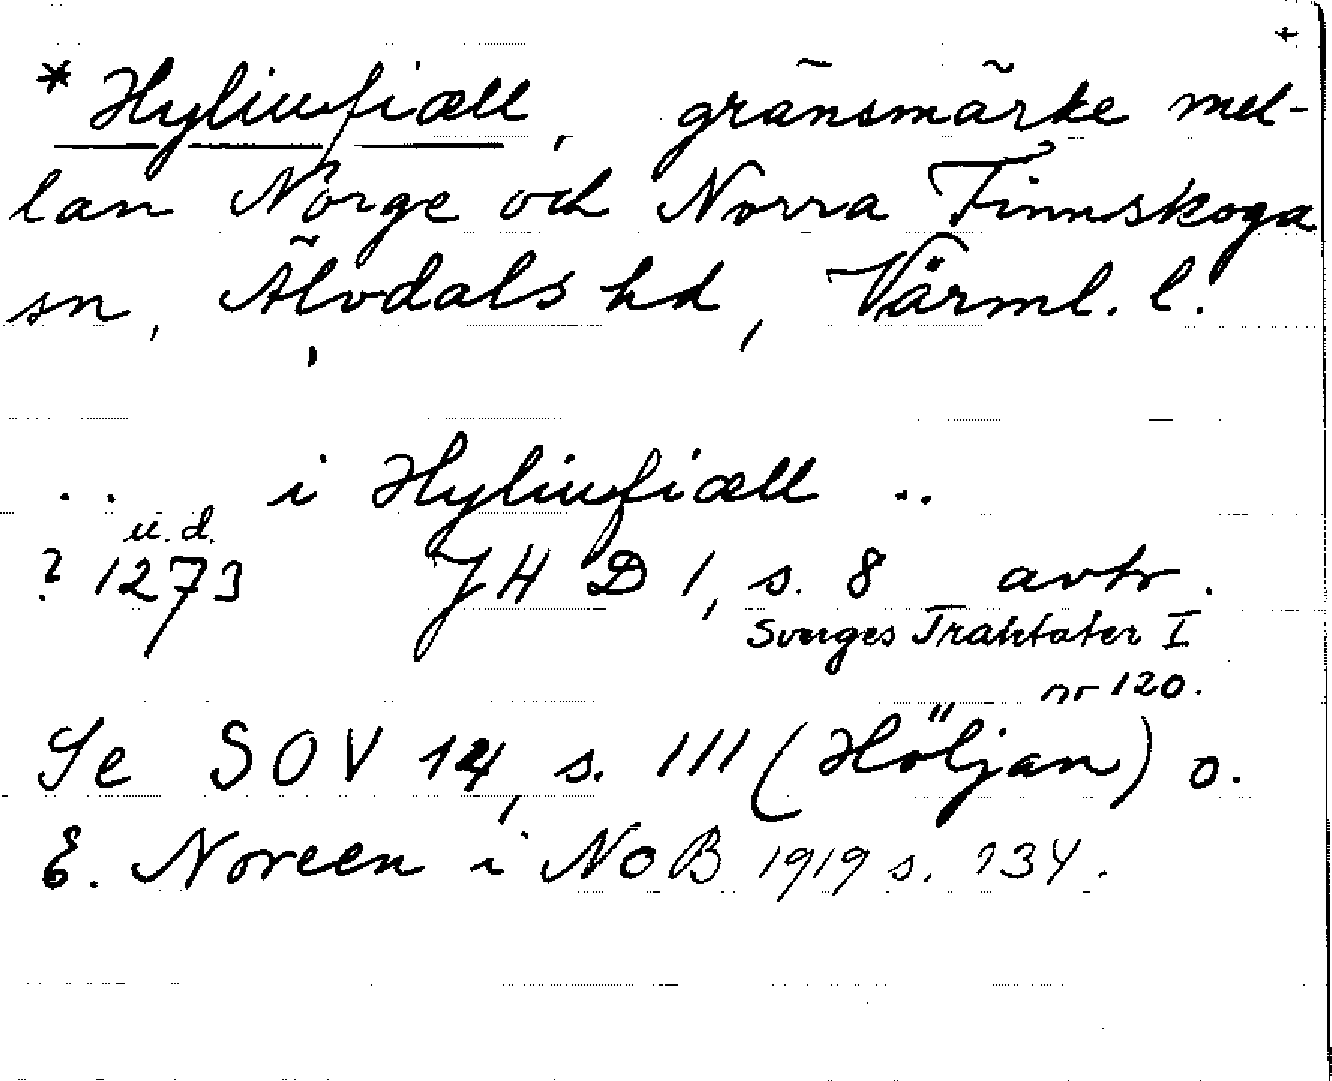 * Hyliusfiæll, gränsmärke mel-
lan Norge och Norra Finnskoga
sn, Älvdals hd, Värml. l.
. . i Hyliusfiæll ..
u. d.
? 1273 JHD 1, s. 8 avtr.
Sverges Traktater I
nr 120.
Se SOV 14, s. 111 (Höljan) o.
E. Noreen i NoB 1919 s. 134.